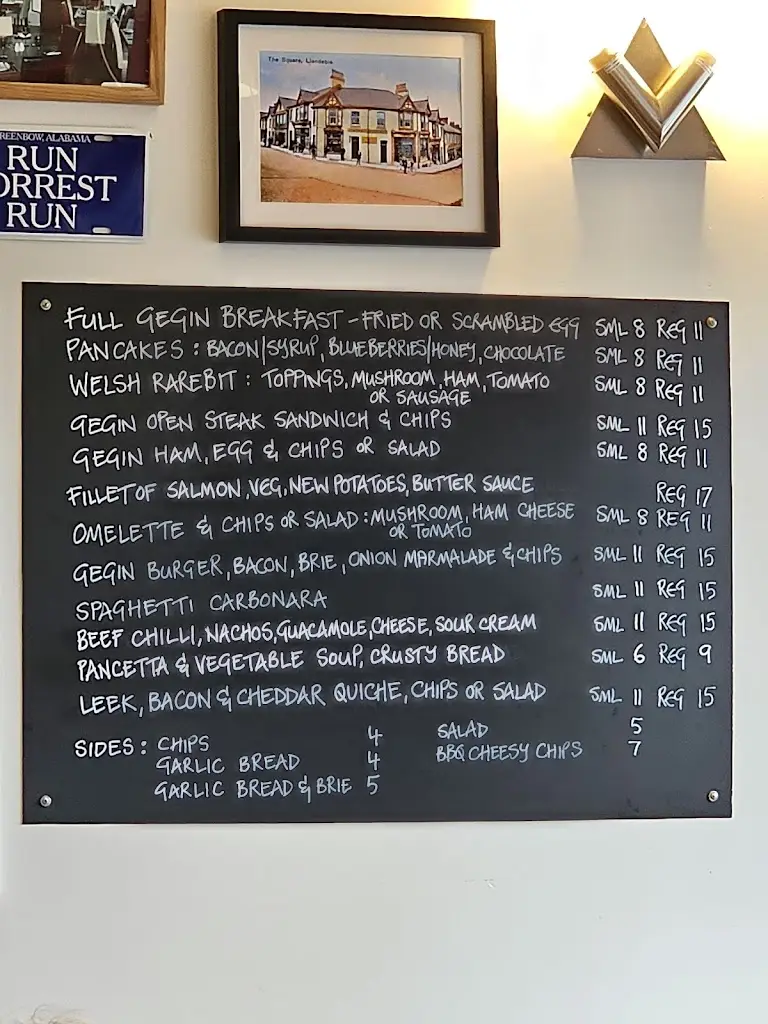 The Square, Llandebie
GREENBOW, ALABAMA
RUN
FORREST
RUN
FULL GEGIN BREAKFAST - FRIED OR SCRAMBLED EGG SML 8 REG 11
PANCAKES : BACON/SYRUP, BLUEBERRIES/HONEY, CHOCOLATE SML 8 REG 11
WELSH RAREBIT : TOPPINGS, MUSHROOM, HAM, TOMATO SML 8 REG 11
OR SAUSAGE
GEGIN OPEN STEAK SANDWICH & CHIPS SML 11 REG 15
GEGIN HAM, EGG & CHIPS OR SALAD SML 8 REG 11
FILLET OF SALMON, VEG, NEW POTATOES, BUTTER SAUCE REG 17
OMELETTE & CHIPS OR SALAD : MUSHROOM, HAM CHEESE SML 8 REG 11
OR TOMATO
GEGIN BURGER, BACON, BRIE, ONION MARMALADE & CHIPS SML 11 REG 15
SPAGHETTI CARBONARA SML 11 REG 15
BEEF CHILLI, NACHOS, GUACAMOLE, CHEESE, SOUR CREAM SML 11 REG 15
PANCETTA & VEGETABLE SOUP, CRUSTY BREAD SML 6 REG 9
LEEK, BACON & CHEDDAR QUICHE, CHIPS OR SALAD SML 11 REG 15
SIDES : CHIPS 4 SALAD 5
GARLIC BREAD 4 BBQ CHEESY CHIPS 7
GARLIC BREAD & BRIE 5